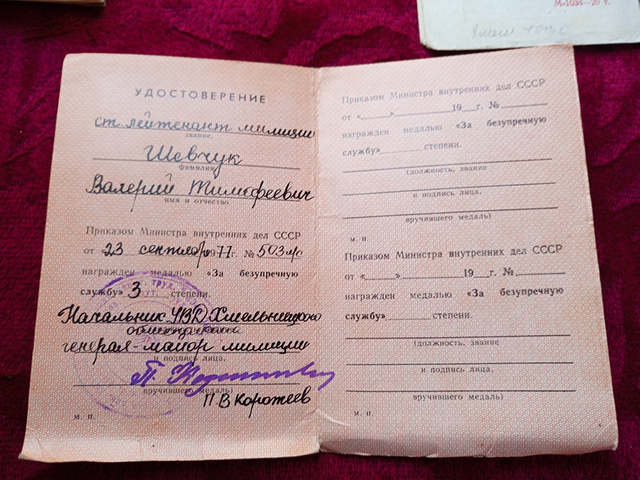 УДОСТОВЕРЕНИЕ
ст. лейтенант милиции
звание,
Шевчук
фамилия
Валерий Тимофеевич
имя и отчество
Приказом Министра внутренних дел СССР
от «23 сентября 1977 г. № 503
награжден медалью «За безупречную
службу» 3 степени.
Начальник УВД Хмельницкого
облисполкома
генерал-майор милиции
и подпись лица,
вручившего медаль)
П.В Коротеев
м. п.
Приказом Министра внутренних дел СССР
от «____» ________ 19__г. № ______
награжден медалью «За безупречную
службу»______степени.
(должность, звание
и подпись лица,
вручившего медаль)
м. п.
Приказом Министра внутренних дел СССР
от «____» ________ 19__г. № ______
награжден медалью «За безупречную
службу»______степени.
(должность, звание
и подпись лица,
вручившего медаль)
м. п.